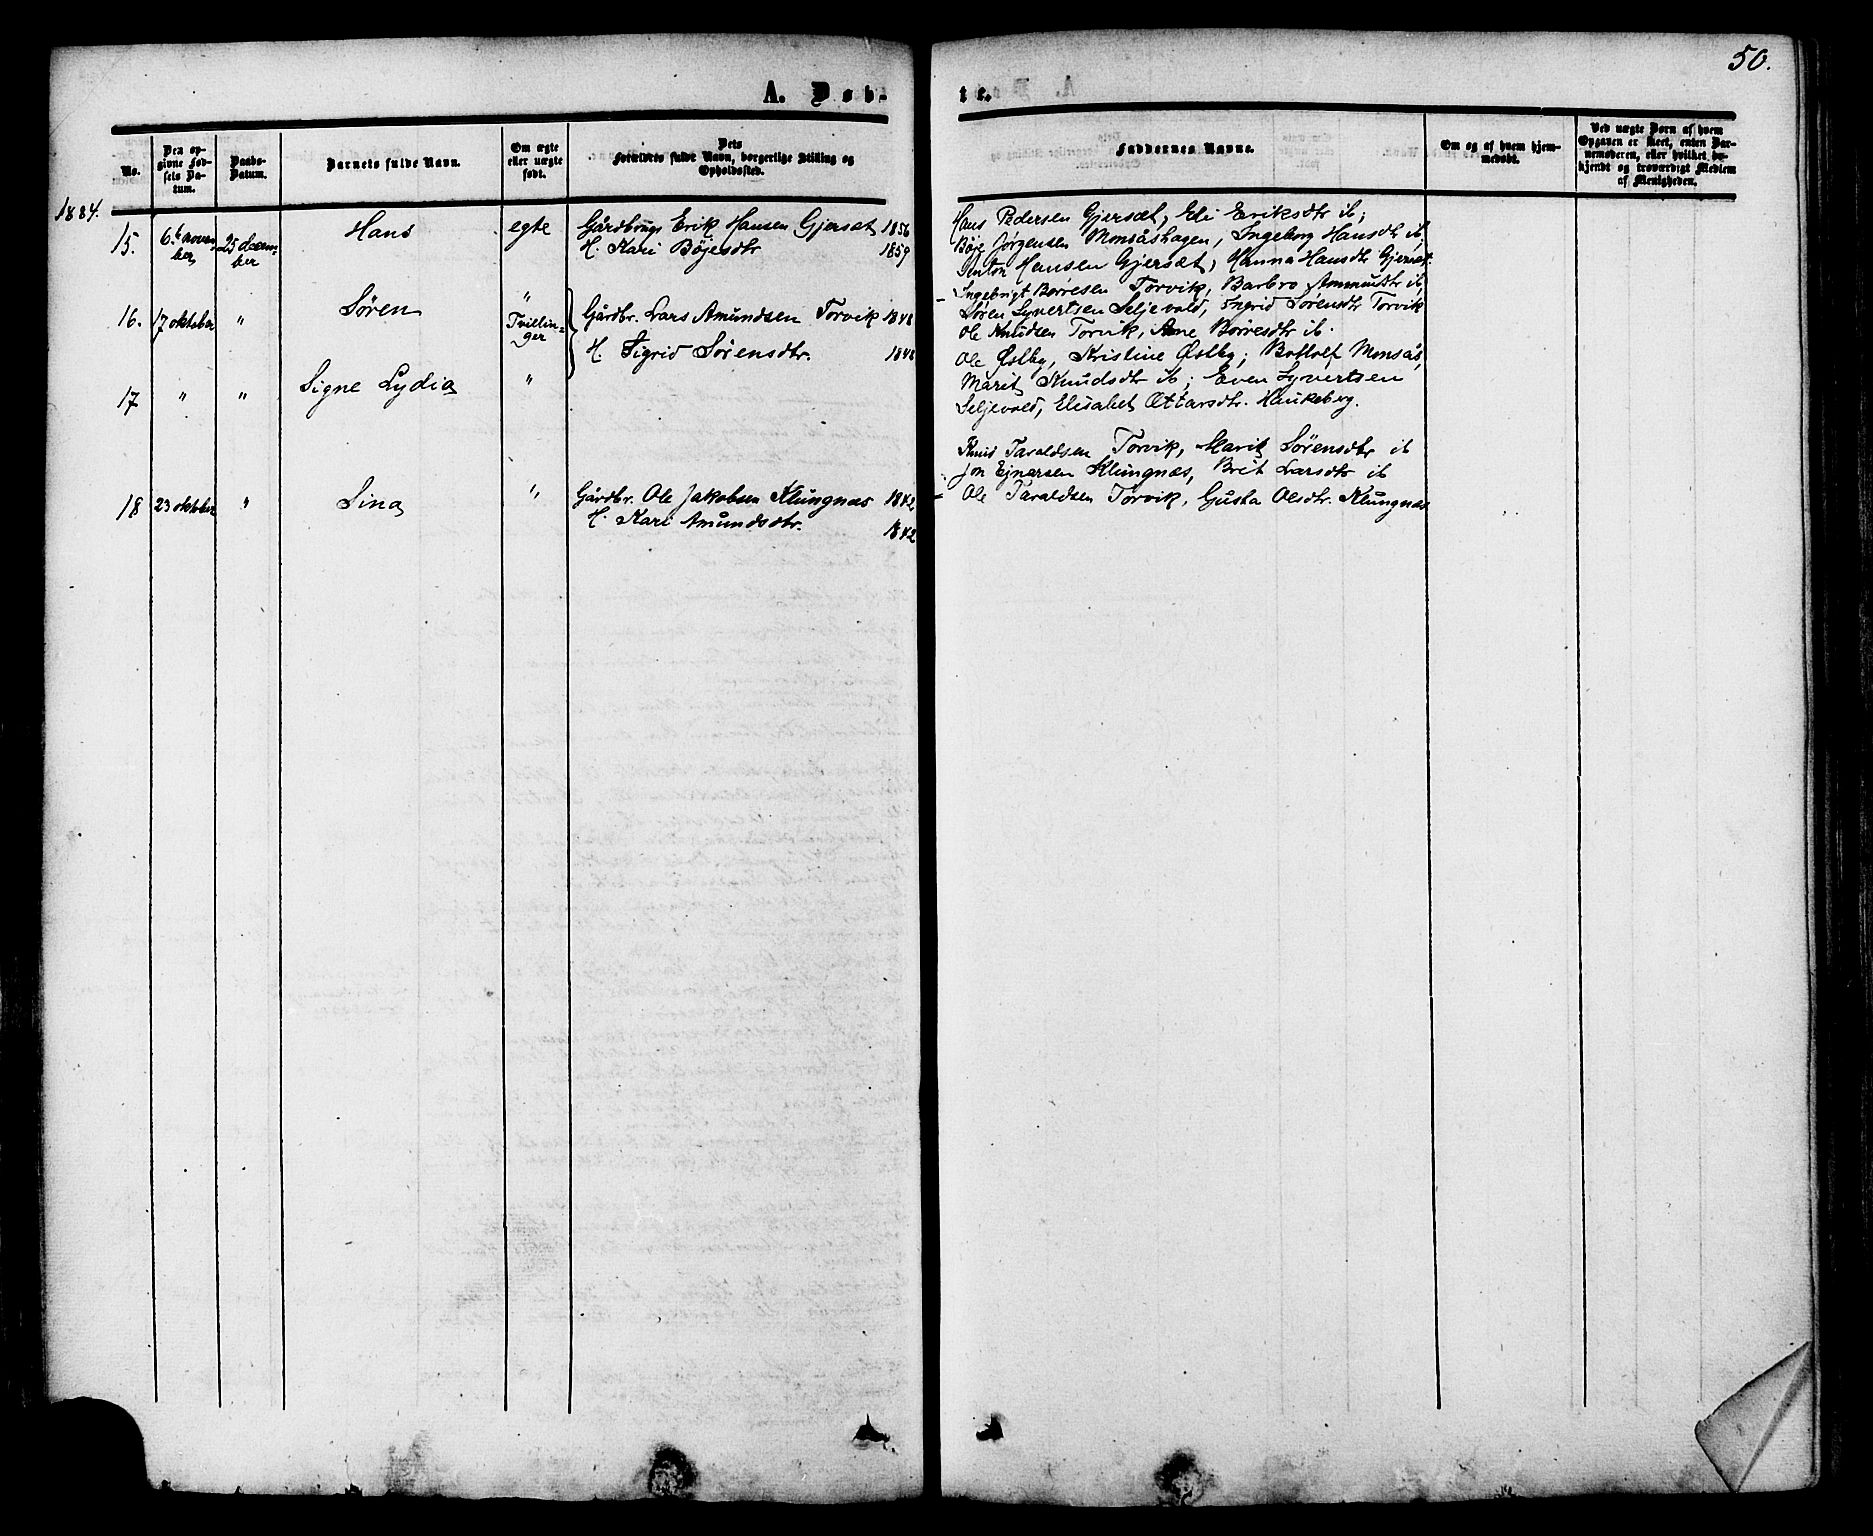 50.
A. Døb-
te.
No.
Den op-
givne Fød-
sels Da-
tum.
Daabs-
Datum.
Barnets fulde Navn.
Om ægte
eller uægte
født.
Dets
Forældres fulde Navn, borgerlige Stilling og
Opholdssted.
Faddernes Navne.
Om og af hvem hjem-
medøbt.
Ved uægte Born af hvem
Opgaven er skeet, enten Bar-
nemoderen, eller hvilket be-
kjendt og troværdigt Medlem
af Menigheden.
1884.
15.
6te novem
ber
25 decem-
ber
Hans
egte
Gårdbrugs Erik Hansen Gjersæt 1856
H. Kari Böjesdtr 1859
Hans Pedersen Gjersæt, Eli Eriksdtr ib;
Böje Jörgensen Monsåshagen, Ingeborg Hansdtr ib,
Anton Hansen Gjersæt, Hanna Hansdtr Gjersæt.
16.
17 oktober
"
Sören
"
Tvillin-
ger
Gårdbr. Lars Amundsen Torvik 1848
H. Sigrid Sörensdtr. 1848
- Ingebrigt Börresen Torvik, Barbro Ammundtr ib,
Sören Syvertsen Seljevold, Ingrid Sörensdtr Torvik
Ole Knudsen Torvik, Ane Börresdtr ib.
17
"
"
Signe Lydia
"
Ole Østby, Kristine Østby; Bottolf Monsås,
Marit Knudsdtr ib; Even Syvertsen
Seljevold, Elisabet Ottarsdtr. Haukeberg.
18
23 oktober
"
Lina
"
Gårdbr. Ole Jakobsen Klungnæs 1842
H. Kari Amundsdtr. 1842
Knud Taraldsen Torvik, Marit Sörensdtr ib
Jon Ejnarsen Klungnæs, Brit Larsdtr ib
Ole Taraldsen Torvik, Gusta Olsdtr. Klungnæs